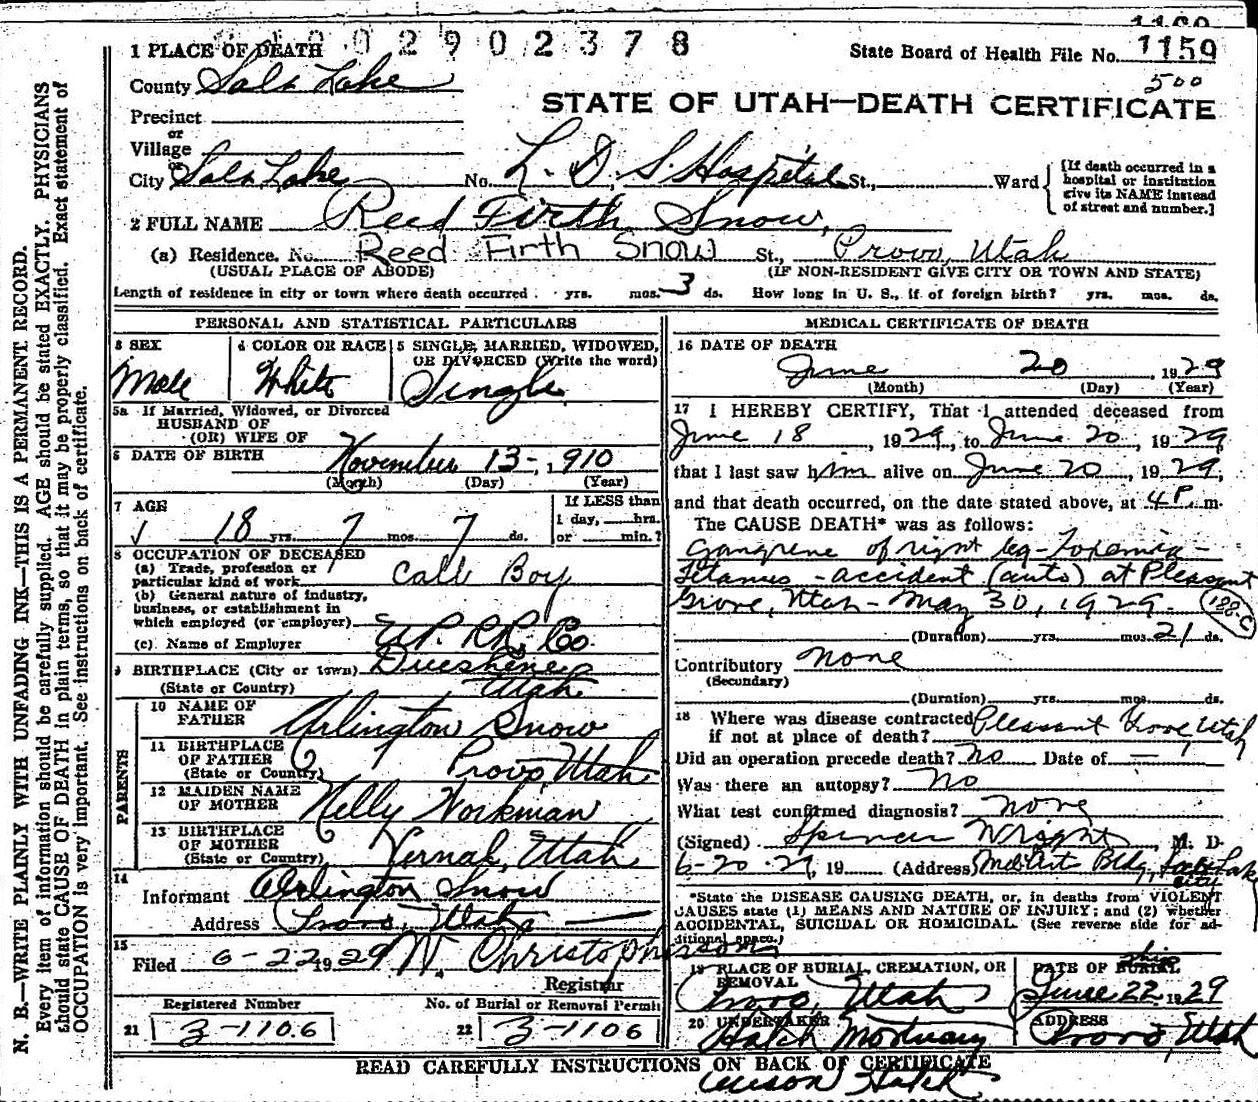 1160
0 0 2 9 0 2 3 7 8
State Board of Health File No. 1159
500
1 PLACE OF DEATH
County Salt Lake
STATE OF UTAH—DEATH CERTIFICATE
Precinct
or
Village
or
City Salt Lake No. L. D. S Hospital St., Ward
[If death occurred in a hospital or institution give its NAME instead of street and number.]
2 FULL NAME Reed Firth Snow,
(a) Residence. No. Reed Firth Snow St., Provo, Utah
(USUAL PLACE OF ABODE) (IF NON-RESIDENT GIVE CITY OR TOWN AND STATE)
Length of residence in city or town where death occurred . yrs. mos. 3 ds. How long in U. S., if of foreign birth? yrs. mos. ds.
PERSONAL AND STATISTICAL PARTICULARS
3 SEX 4 COLOR OR RACE 5 SINGLE, MARRIED, WIDOWED,
OR DIVORCED (Write the word)
Male White Single
5a If Married, Widowed, or Divorced
HUSBAND OF
(OR) WIFE OF
6 DATE OF BIRTH November 13-, 1910
(Month) (Day) (Year)
7 AGE If LESS than
18 yrs. 7 mos. 7 ds. 1 day, hrs.
or min.?
8 OCCUPATION OF DECEASED
(a) Trade, profession or
particular kind of work Call Boy
(b) General nature of industry,
business, or establishment in
which employed (or employer)
(c) Name of Employer U.P. RR. Co.
9 BIRTHPLACE (City or town) Duchesne
(State or Country) Utah
PARENTS
10 NAME OF
FATHER Arlington Snow
11 BIRTHPLACE
OF FATHER
(State or Country) Provo Utah
12 MAIDEN NAME
OF MOTHER Nelly Workman
13 BIRTHPLACE
OF MOTHER
(State or Country) Vernal, Utah
14
Informant Arlington Snow
Address Provo, Utah
15
Filed 6-22 1929 W. Christopherson
Registrar
Registered Number No. of Burial or Removal Permit
21 3-1106 22 3-1106
MEDICAL CERTIFICATE OF DEATH
16 DATE OF DEATH
June 20 1929
(Month) (Day) (Year)
17 I HEREBY CERTIFY, That I attended deceased from
June 18, 1929, to June 20, 1929
that I last saw him alive on June 20, 1929,
and that death occurred, on the date stated above, at 4P. m.
The CAUSE DEATH* was as follows:
Gangrene of right leg- Toxemia -
Tetanus - accident (auto) at Pleasant
Grove, Utah - May 30, 1929. 188-C
(Duration) yrs. mos. 21 ds.
Contributory none
(Secondary)
(Duration) yrs. mos. ds.
18 Where was disease contracted Pleasant Grove, Utah
if not at place of death?
Did an operation precede death? no Date of —
Was there an autopsy? no
What test confirmed diagnosis? none
(Signed) Spencer Wright, M. D.
6-20-29, 19 (Address) Med Art Bldg, Salt Lake
City
*State the DISEASE CAUSING DEATH, or, in deaths from VIOLENT
CAUSES state (1) MEANS AND NATURE OF INJURY; and (2) whether
ACCIDENTAL, SUICIDAL OR HOMICIDAL. (See reverse side for ad-
ditional space.)
19 PLACE OF BURIAL, CREMATION, OR REMOVAL
Provo, Utah
DATE OF BURIAL
Ship
June 22 1929
20 UNDERTAKER
Hatch Mortuary
ADDRESS
Provo, Utah
READ CAREFULLY INSTRUCTIONS ON BACK OF CERTIFICATE
Hatch
N. B.—WRITE PLAINLY WITH UNFADING INK—THIS IS A PERMANENT RECORD.
Every item of information should be carefully supplied. AGE should be stated EXACTLY. PHYSICIANS
should state CAUSE OF DEATH in plain terms, so that it may be properly classified. Exact statement of
OCCUPATION is very important. See instructions on back of certificate.